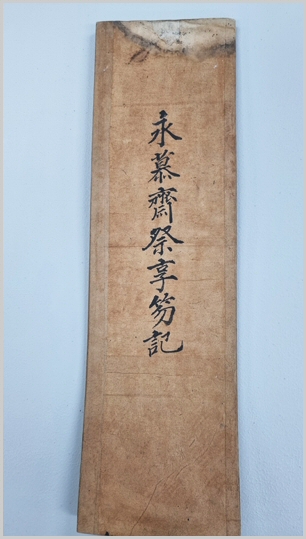 永慕齋祭享笏記